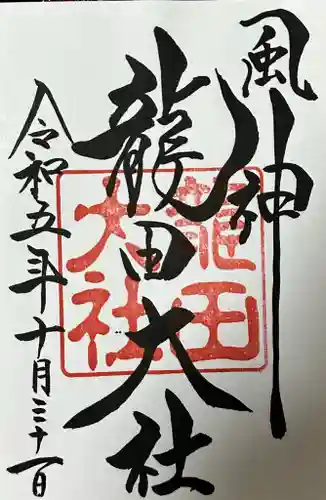 風神
龍田大社
令和五年十月三十一日
龍田
大社